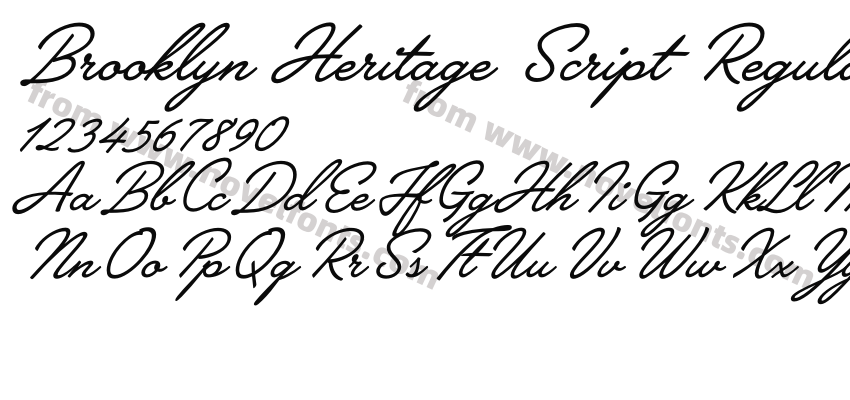 Brooklyn Heritage Script Regula
1234567890
Aa Bb Cc Dd Ee Ff Gg Hh Ii Gg Kk Ll M
Nn Oo Pp Qq Rr Ss Tt Uu Vv Ww Xx Yy
from www.novelfonts.com
from www.novelfonts.com